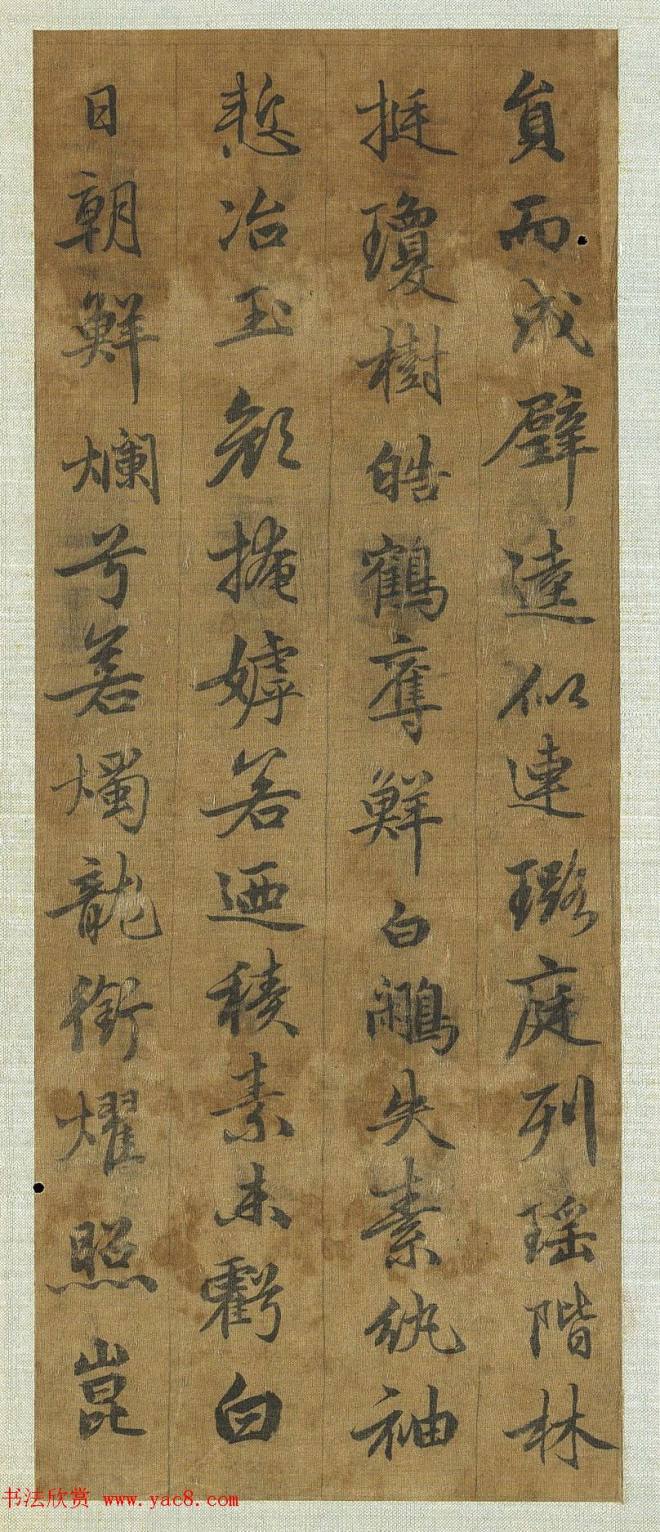 員而成璧逵似連璐庭列瑤階林
挺瓊樹皓鶴奪鮮白鷴失素紈袖
慙冶玉顏掩嫮若迺積素未虧白
日朝鮮爛兮若燭龍銜燿照崑
书法欣赏 www.yac8.com